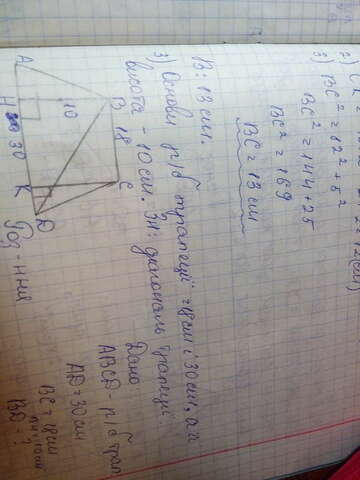 3) BC² = 12² + 5²
BC² = 144 + 25
BC² = 169
BC = 13 см
В: 13 см.
3) Основи р/б трапеції = 18 см і 30 см, а її
висота - 10 см. Зн: діагональ трапеції
Дано
ABCD - р/б трап
AD = 30 см
BC = 18 см
BH = 10 см
BD - ?
A
B
18
C
10
H
30
K
D
Роз-ння